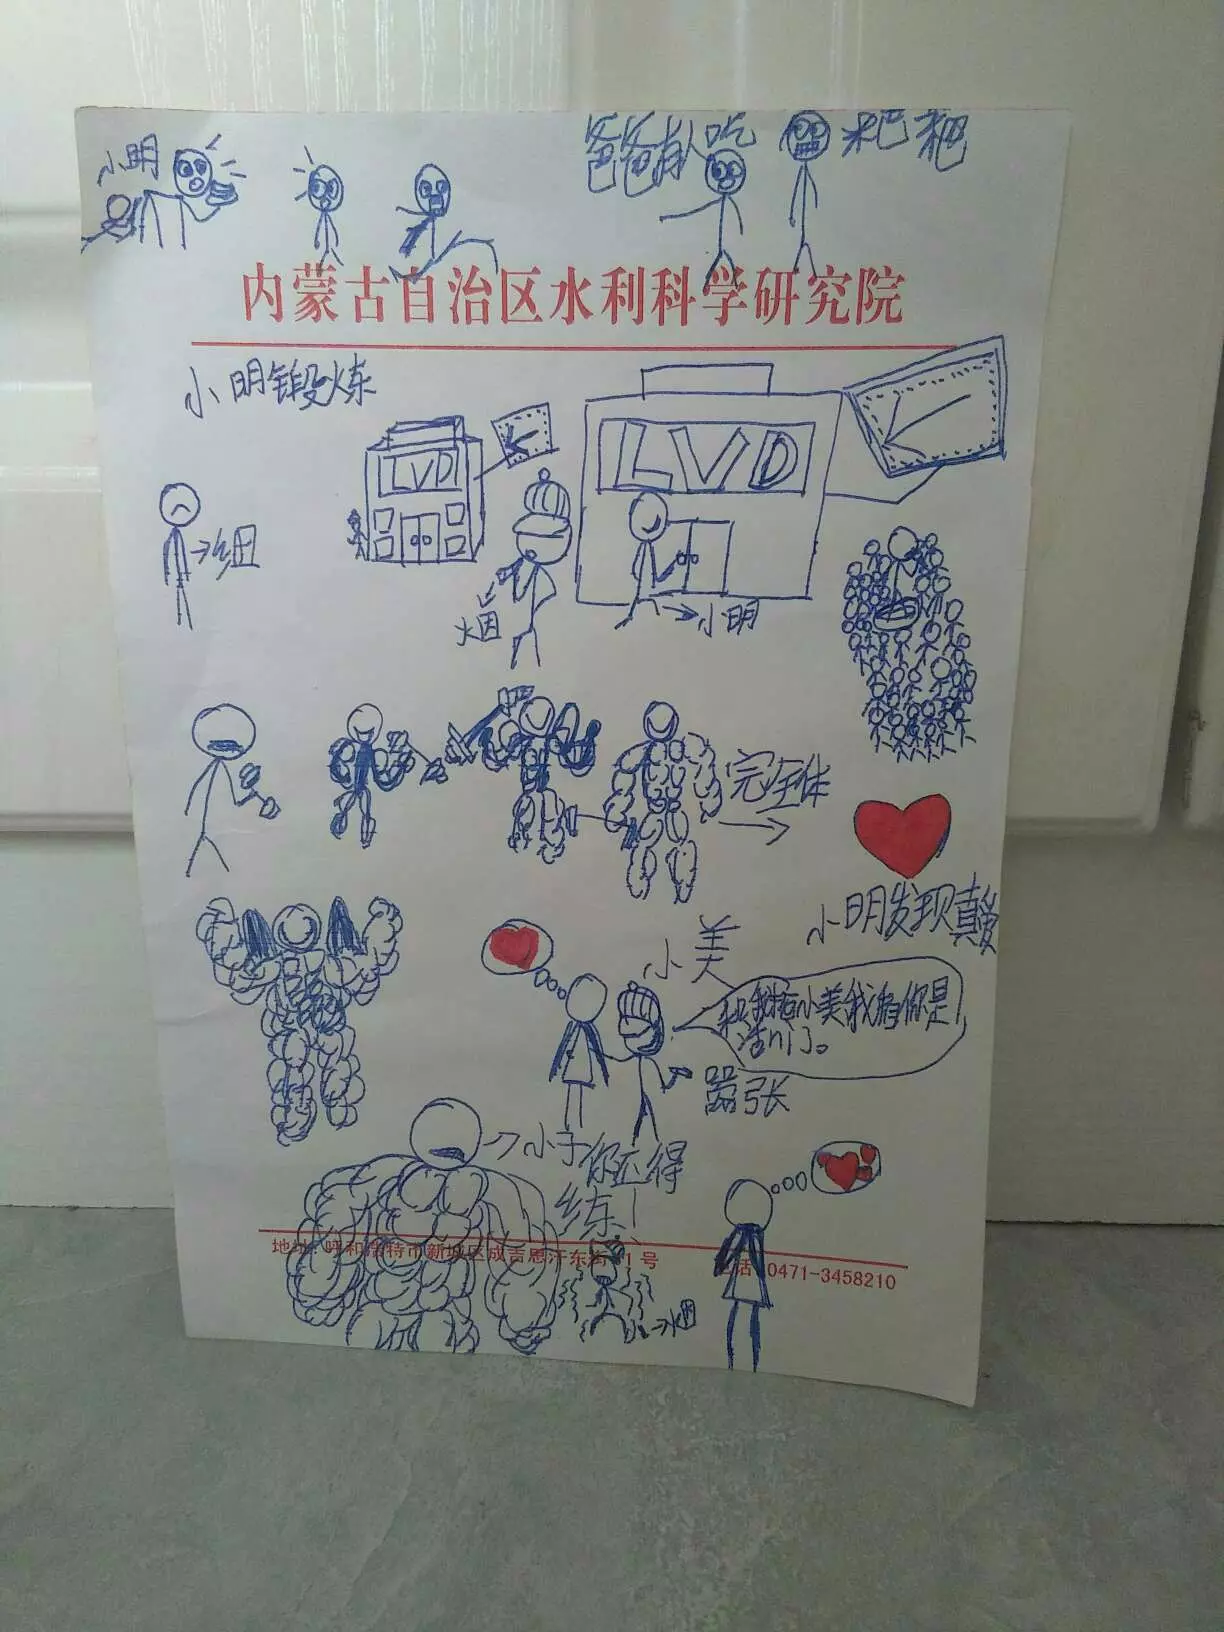 小明
爸爸有人吃
粑粑
内蒙古自治区水利科学研究院
小明锻炼
LVD
LVD
细
烟
小明
完全体
小明发现真爱
小美
是
活
了。
嚣张
小子你还得
练!
地址:呼和浩特市新城区成吉思汗东街 1号
电话 0471-3458210
烟